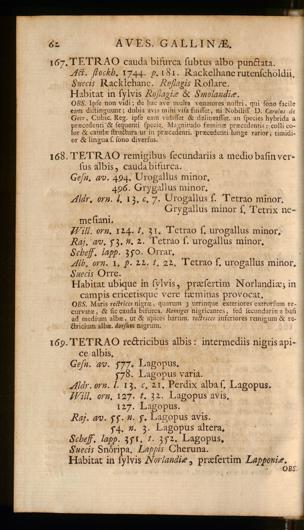 62 AVES. GALLINÆ.
167. TETRAO cauda bifurca subtus albo punctata.
Act. stockh. 1744. p. 181. Rackelhane rutenscholdii.
Suecis Racklehane. Roslagis Roslare.
Habitat in sylvis Roslagiæ & Smolandiæ.
OBS. Ipse non vidi; de hac ave multa venatores nostri, qui sono facile
eam distinguunt; dubiis avis mihi visa fuisset, ni Nobiliss. D. Carolus de
Geer, Cubic. Reg. ipse eam vidisset & delineasset, an species hybrida a
præcedenti & sequenti specie. Magnitudo fæminæ præcedentis; colli co-
lor & caudæ structura ut in præcedenti. præcedenti longe rarior, timidi-
or & lingua s. sono diversus.
168. TETRAO remigibus secundariis a medio basin ver-
sus albis, cauda bifurca.
Gesn. av. 494. Urogallus minor.
496. Grygallus minor.
Aldr. orn. l. 13. c. 7. Urogallus s. Tetrao minor.
Grygallus minor s. Tetrix ne-
mesiani.
Will. orn. 124. t. 31. Tetrao s. urogallus minor.
Raj. av. 53. n. 2. Tetrao s. urogallus minor.
Scheff. lapp. 350. Orrar.
Alb. orn. 1. p. 22. t. 22. Tetrao s. urogallus minor.
Suecis Orre.
Habitat ubique in sylvis, præsertim Norlandiæ; in
campis ericetisque vere fœminas provocat.
OBS. Maris rectrices nigræ, quarum 3 utrinque exteriores extrorsum re-
curvatæ, & sic cauda bifurca. Remiges nigricantes, sed secundarii a basi
ad medium albæ, ut & apices harum. rectrices inferiores remigum & re-
ctricium albæ. dorsum nigrum.
169. TETRAO rectricibus albis: intermediis nigris api-
ce albis.
Gesn. av. 577. Lagopus.
578. Lagopus varia.
Aldr. orn. l. 13. c. 21. Perdix alba s. Lagopus.
Will. orn. 127. t. 32. Lagopus avis.
127. Lagopus.
Raj. av. 55. n. 5. Lagopus avis.
54. n. 3. Lagopus altera.
Scheff. lapp. 351. t. 352. Lagopus.
Suecis Snöripa. Lappis Cheruna.
Habitat in sylvis Norlandiæ, præsertim Lapponiæ.
OBS.